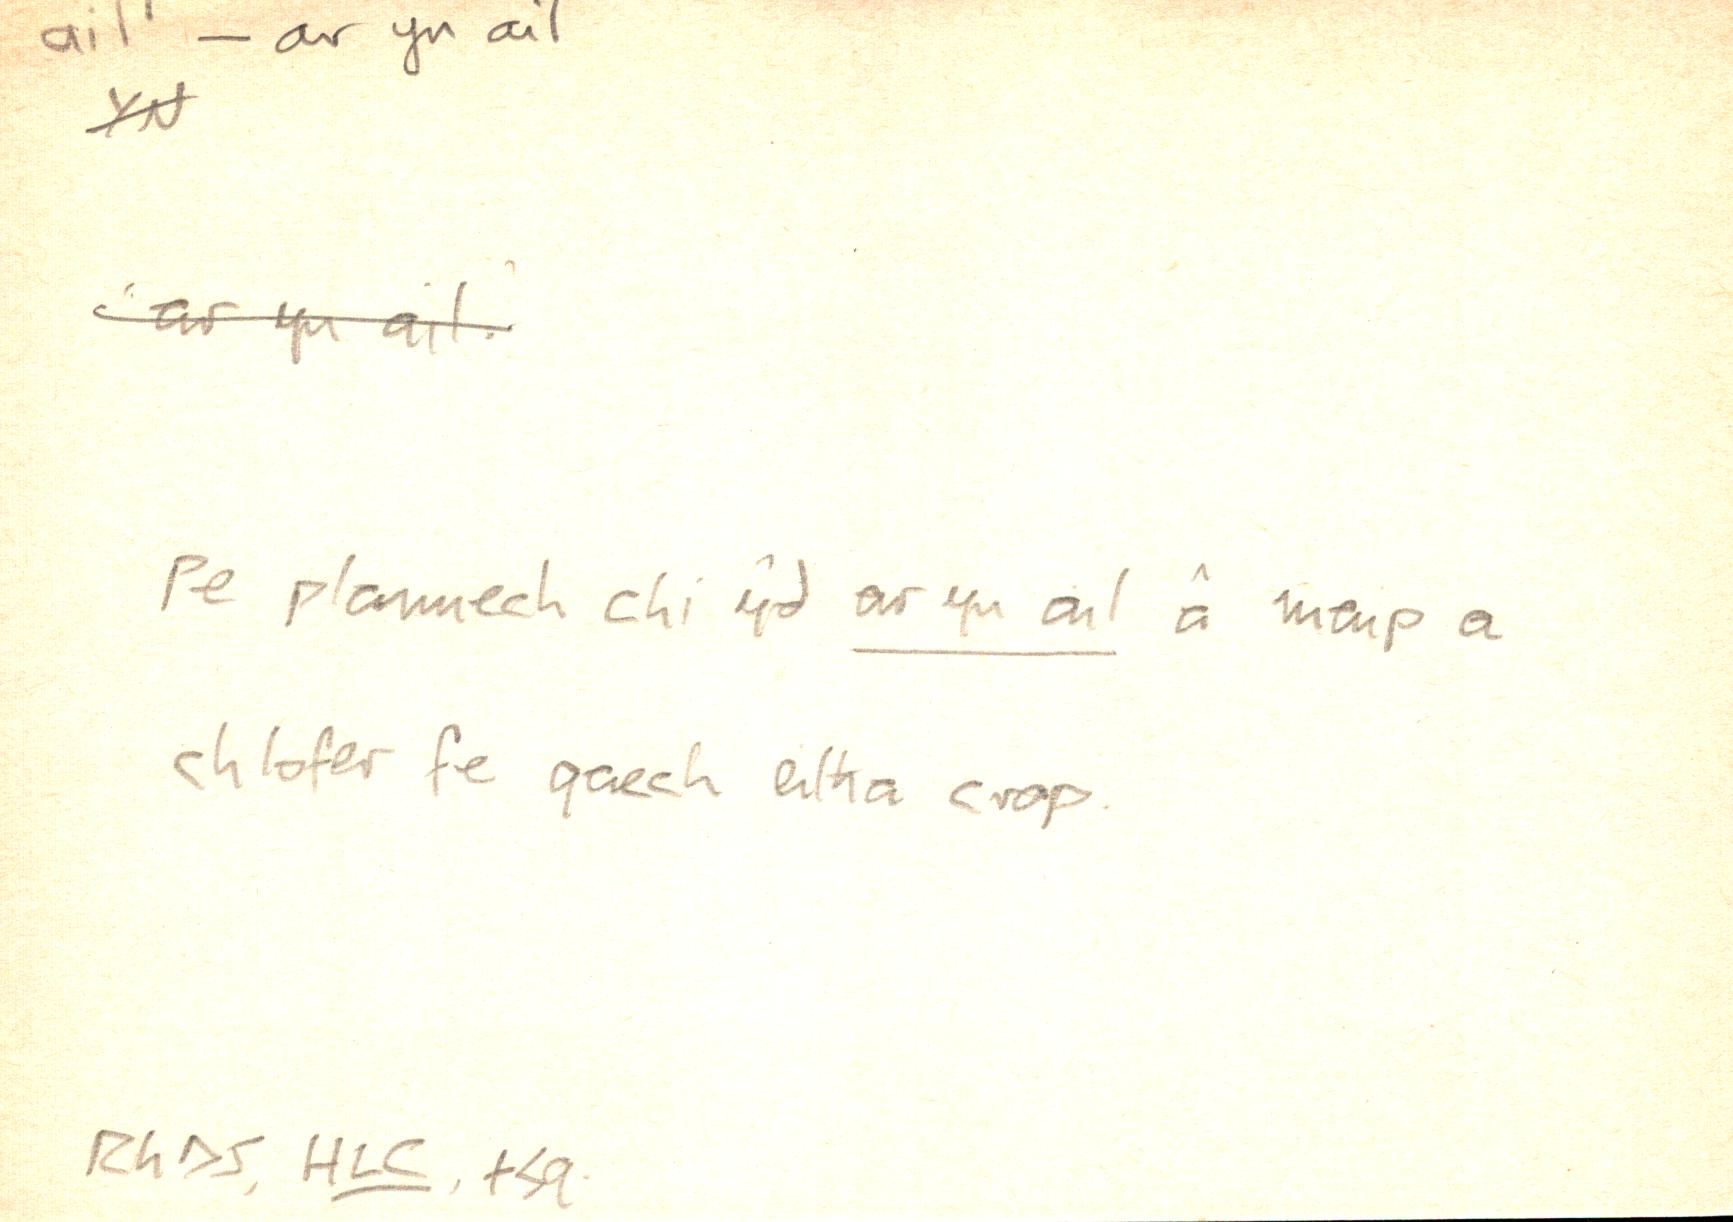 ail' – ar yn ail
YN
'ar yn ail.'
Pe plannech chi ŷd ar yn ail â meip a
chlofer fe gaech eitha crop.
RhDS, HLC, t59.